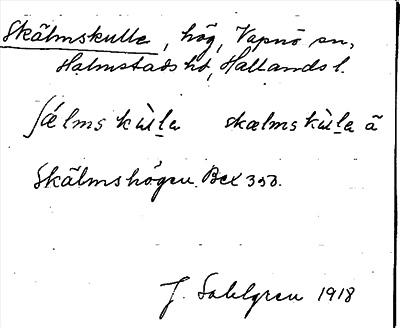 Skälmskulle, hög, Vapnö sn,
Halmstads hd, Hallands l.
ʃǽlms kùl̠a skælmskùl̠a ã
Skälmshögen. Bex 350.
J. Sahlgren 1918